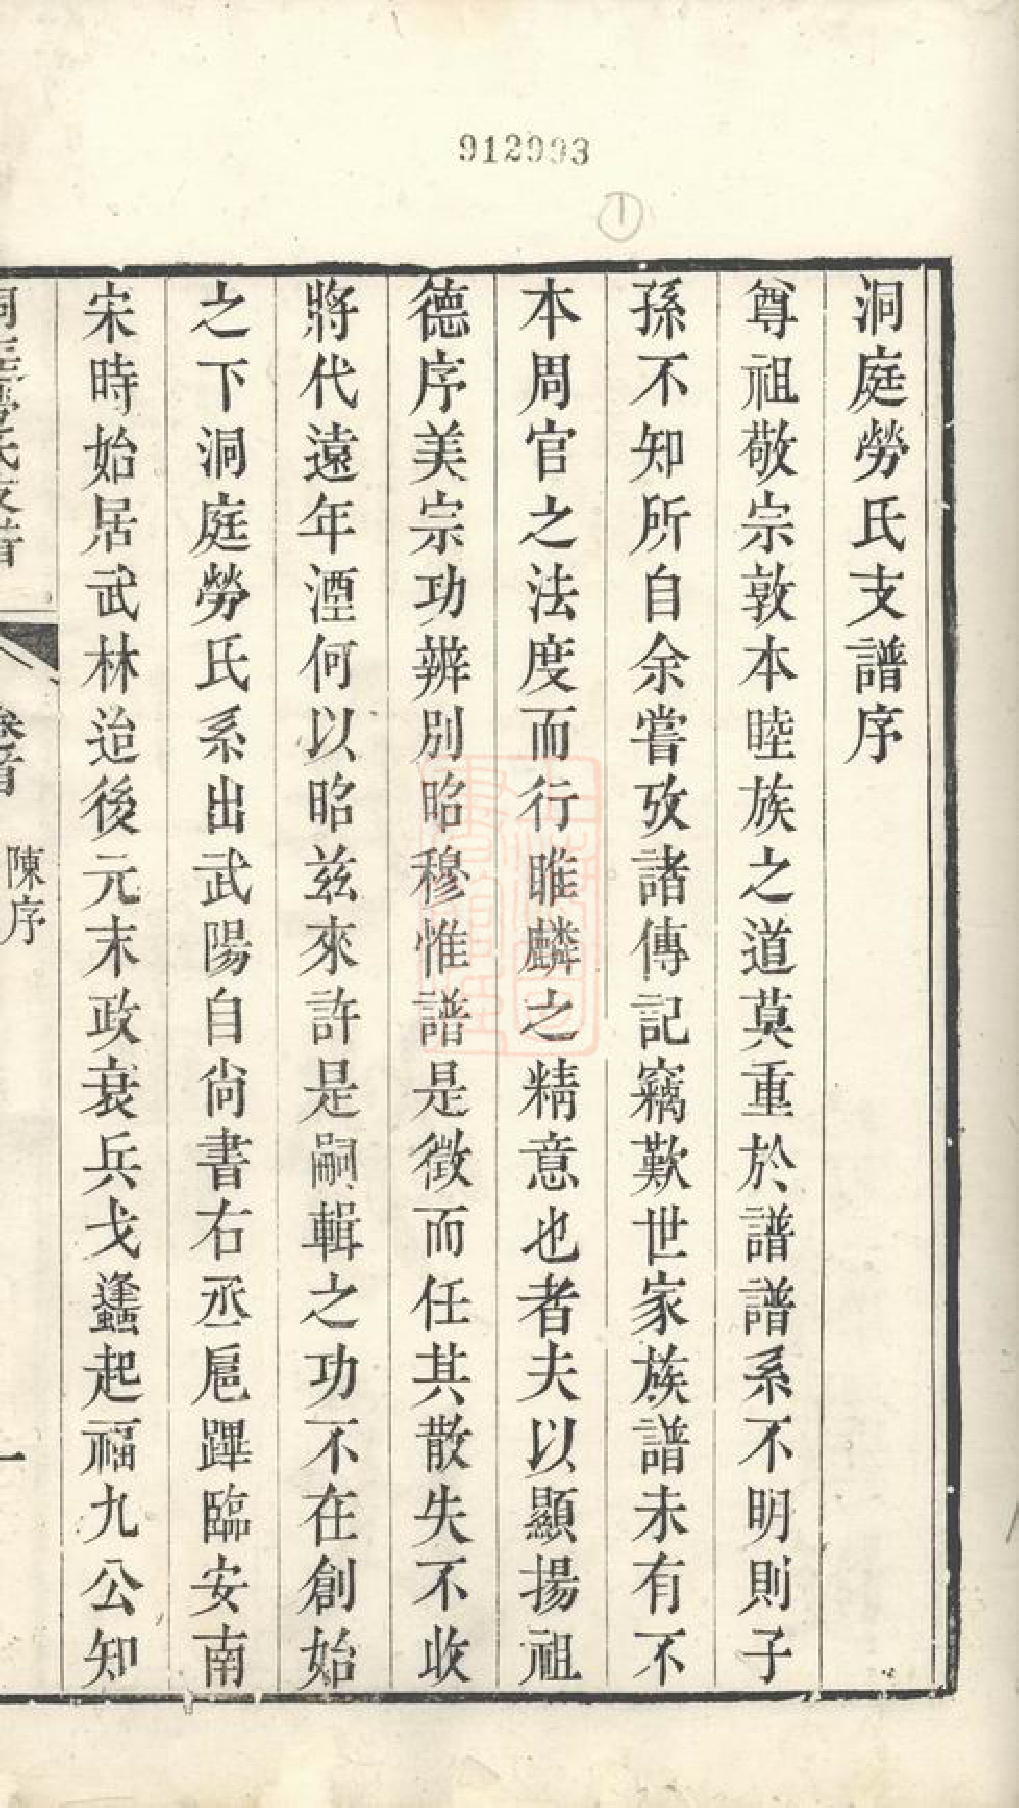 912993
1
洞庭勞氏支譜序
尊祖敬宗敦本睦族之道莫重於譜譜系不明則子
孫不知所自余嘗攷諸傳記竊歎世家族譜未有不
本周官之法度而行睢麟之精意也者夫以顯揚祖
德序美宗功辨別昭穆惟譜是徵而任其散失不收
將代遠年湮何以昭兹來許是嗣輯之功不在創始
之下洞庭勞氏系出武陽自尙書右丞扈蹕臨安南
宋時始居武林迨後元末政衰兵戈蠭起福九公知
洞庭勞氏支譜 卷首 陳序 一